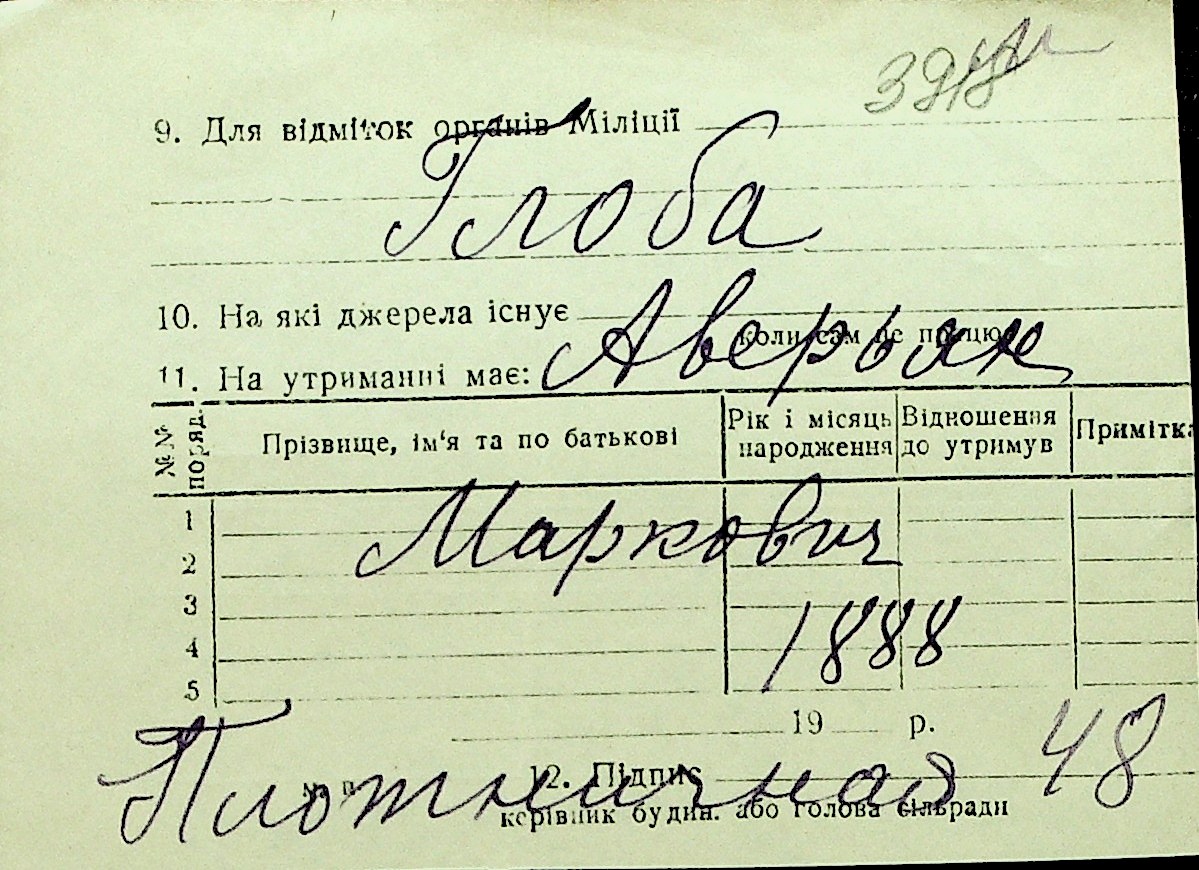 3918
9. Для відміток органів Міліції
Глоба
10. На які джерела існує
коли сам не працює
Аверьян
11. На утриманні має:
№№ поряд. Прізвище, ім'я та по батькові Рік і місяць народження Відношення до утримув Примітка
1
Маркович
2
3
1888
4
5
19 р.
Плотничная 48
12. Підпис
керівник будин. або голова сільради